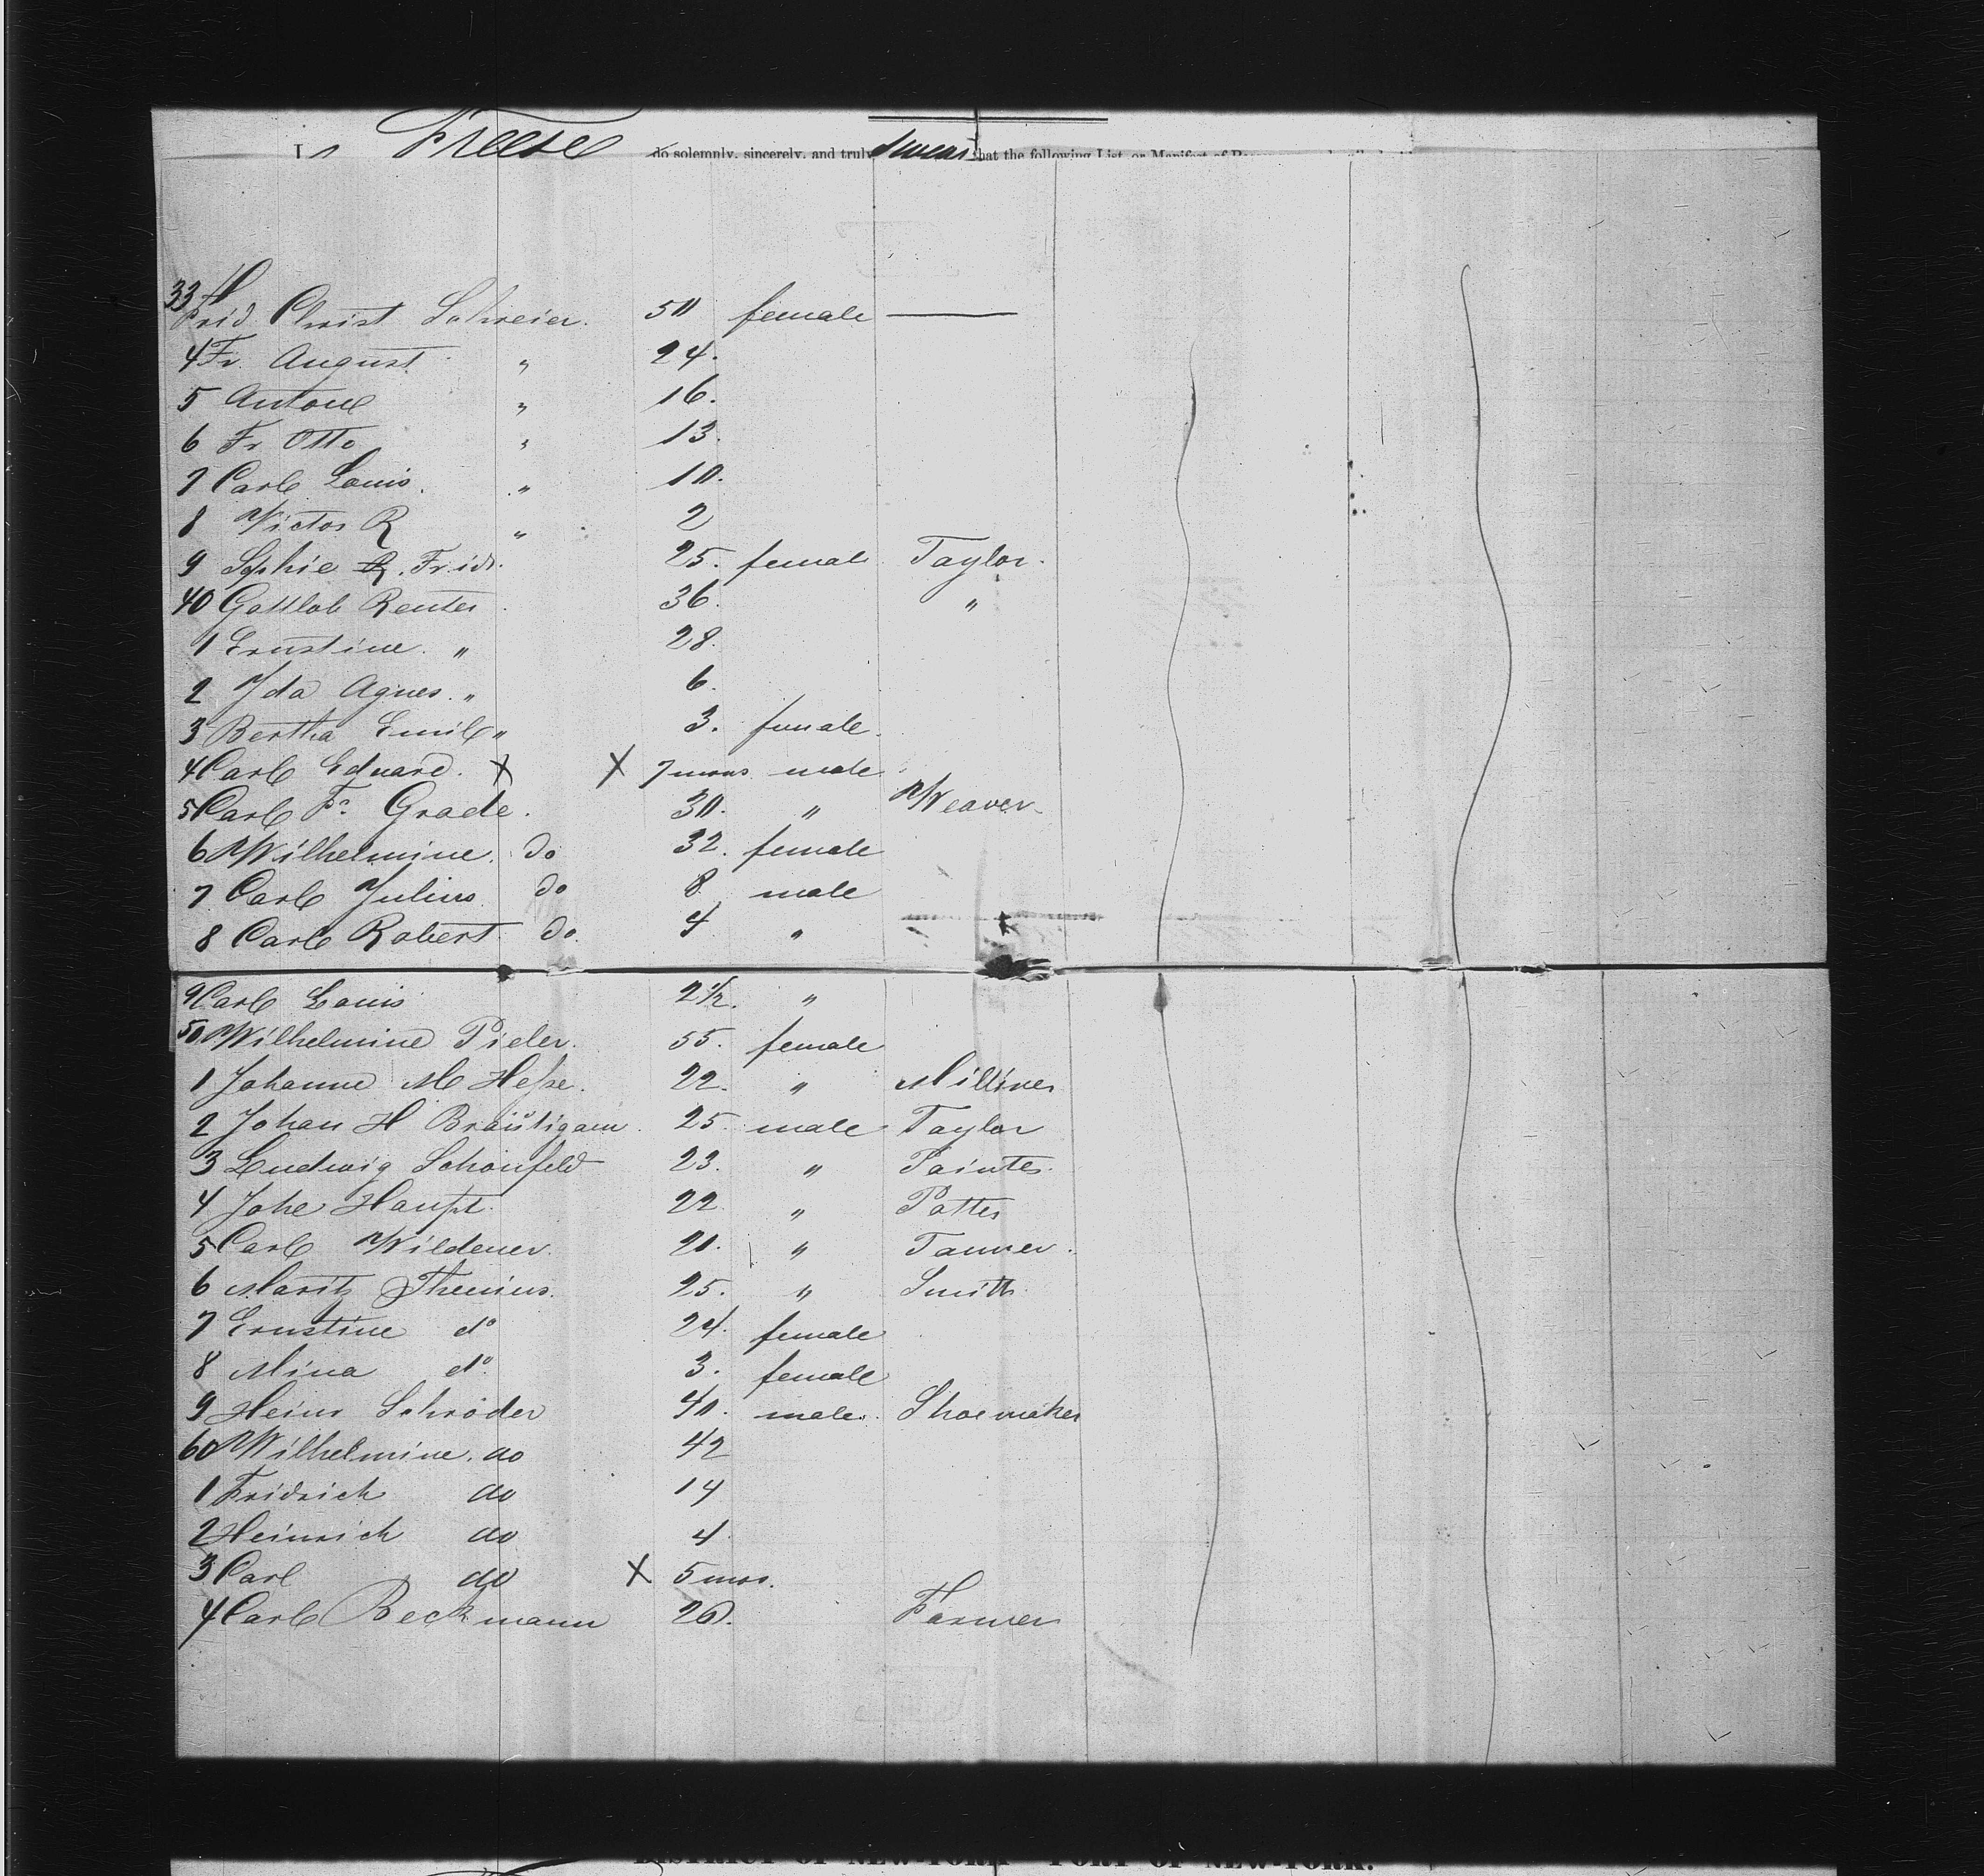 I, Freese do solemnly, sincerely, and truly swear that the following List or Manifest of
33 Frid. Christ Schreier. 50 female —
4 Fr. August " 24.
5 Antone " 16.
6 Fr Otto " 13.
7 Carl Louis. " 10.
8 Victor R " 2
9 Sophie R. Fridr. 25. female Taylor.
40 Gottlob Reuter. 36. "
1 Ernstine. " 28.
2 Ida Agnes. " 6.
3 Bertha Emil " 3. female.
4 Carl Eduard. X X 7 mons male
5 Carl Fr. Grade. 30. " Weaver
6 Wilhelmine. do 32. female
7 Carl Julius. do 8 male
8 Carl Robert do. 4 "
9 Carl Louis 2 1/2. "
50 Wilhelmine Pieler. 55. female
1 Johanne M Hesse. 22. " Milliner
2 Johan H Bräutigam. 25. male Taylor
3 Ludwig Schönfeld 23. " Painter.
4 Johe Haupt. 22 " Potter
5 Carl Wildener. 20. " Tanner.
6 Moritz Thenius. 25. " Smith.
7 Ernstine do 24. female
8 Mina do. 3. female
9 Heinr Schröder 40. male. Shoemaker
60 Wilhelmine. do 42
1 Fridrich do 14
2 Heinrich do 4
3 Carl do X 5 mos.
4 Carl Beckmann 20. Farmer
DISTRICT OF NEW-YORK—PORT OF NEW-YORK.